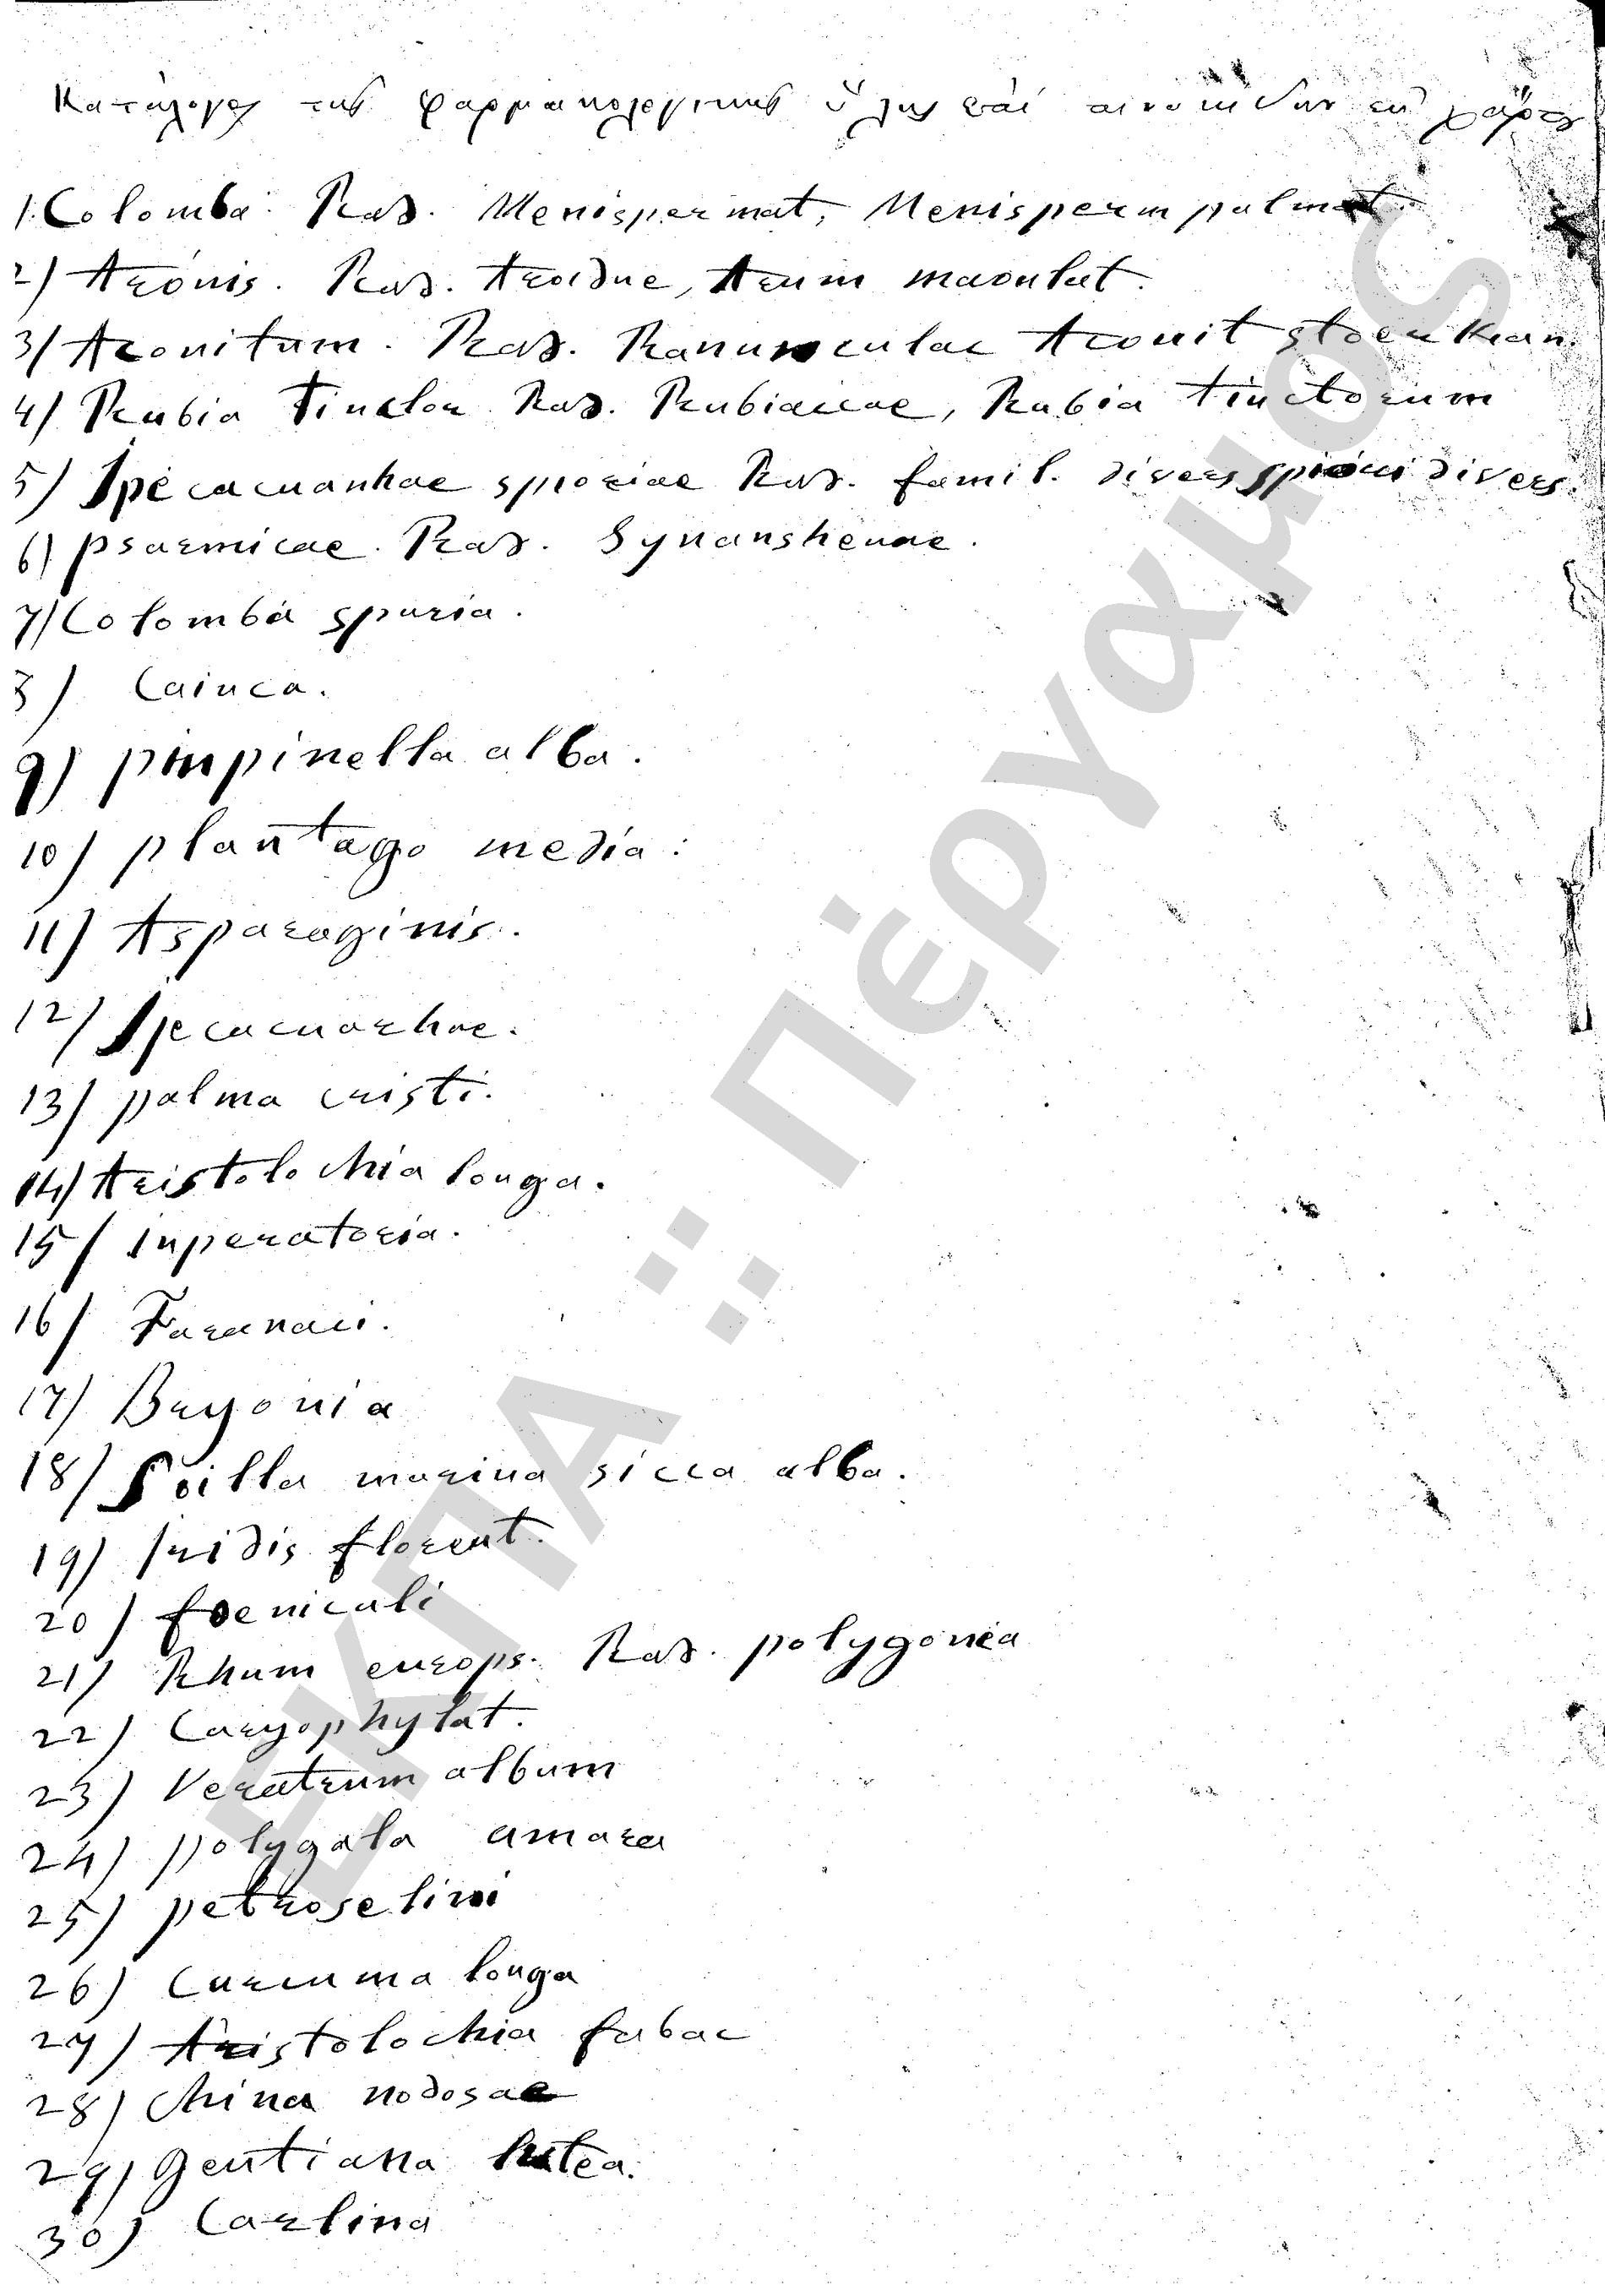 Κατάλογος της φαρμακολογικης ύλης καί
1. Colomba. Rad. Menispermat, Menisperm palmat.
2) Aronis. Rad. Aroidae, Arum maculat.
3) Aconitum. Rad. Ranunculac Aconit stoerkean.
4) Rubia Tinctor Rad. Rubiaceae, Rubia tinctorum
5) Ipecacuanhae spuriae Rad. famil. divers speciei divers.
6) psarmicae. Rad. Synanshenae.
7) Colomba spuria.
8) Cainca.
9) pimpinella alba.
10) plantago media:
11) Asparaginis.
12) Ipecacuarhae.
13) palma cristi.
14) Aristolochia longa.
15) inperatoria.
16) Taranaci.
17) Bryonia
18) Scilla marina sicca alba.
19) Iridis florent.
20) foeniculi
21) Rhum europ. Rad. polygonea
22) Caryophylat.
23) Veratrum album
24) polygala amara
25) petroselini
26) Curcuma longa
27) Aristolochia fabac
28) China nodosae
29) gentiana lutea.
30) Carlina
ΕΚΠΑ :: Πέργαμος